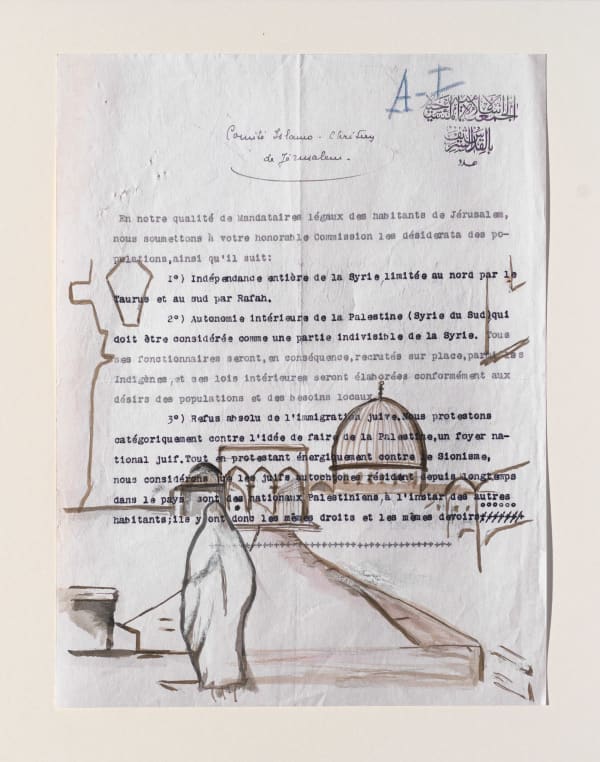 A-I
الجمعية الاسلامية المسيحية
بالقدس الشريف
عدد
Comité Islamo-Chrétien
de Jérusalem.
En notre qualité de Mandataires légaux des habitants de Jérusalem,
nous soumettons à votre honorable Commission les désiderata des po-
pulations,ainsi qu'il suit:
1°) Indépendance entière de la Syrie,limitée au nord par le
Taurus et au sud par Rafah.
2°) Autonomie intérieure de la Palestine (Syrie du Sud)qui
doit être considérée comme une partie indivisible de la Syrie. Tous
ses fonctionnaires seront,en conséquence,recrutés sur place,parmi les
Indigènes,et ses lois intérieures seront élaborées conformément aux
désirs des populations et des besoins locaux.
3°) Refus absolu de l'immigration juive.Nous protestons
catégoriquement contre l'idée de faire de la Palestine,un foyer na-
tional juif.Tout en protestant énergiquement contre le Sionisme,
nous considérons que les juifs autochtones résidant depuis longtemps
dans le pays sont des nationaux Palestiniens,à l'instar des autres
habitants;ils y ont donc les mêmes droits et les mêmes devoirs